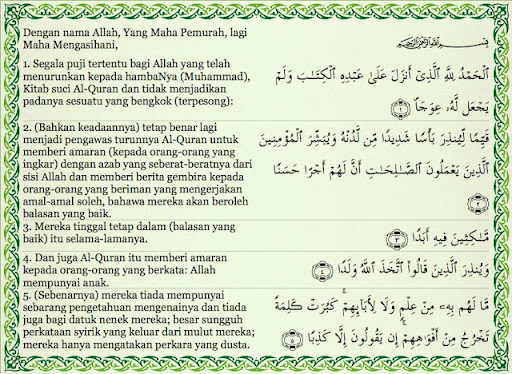 Dengan nama Allah, Yang Maha Pemurah, lagi
Maha Mengasihani,
بِسْمِ اللَّهِ الرَّحْمَٰنِ الرَّحِيمِ
1. Segala puji tertentu bagi Allah yang telah
menurunkan kepada hambaNya (Muhammad),
Kitab suci Al-Quran dan tidak menjadikan
padanya sesuatu yang bengkok (terpesong):
ٱلْحَمْدُ لِلَّهِ ٱلَّذِىٓ أَنزَلَ عَلَىٰ عَبْدِهِ ٱلْكِتَـٰبَ وَلَمْ
يَجْعَل لَّهُۥ عِوَجَا ۜ ١
2. (Bahkan keadaannya) tetap benar lagi
menjadi pengawas turunnya Al-Quran untuk
memberi amaran (kepada orang-orang yang
ingkar) dengan azab yang seberat-beratnya dari
sisi Allah dan memberi berita gembira kepada
orang-orang yang beriman yang mengerjakan
amal-amal soleh, bahawa mereka akan beroleh
balasan yang baik.
قَيِّمًا لِّيُنذِرَ بَأْسًا شَدِيدًا مِّن لَّدُنْهُ وَيُبَشِّرَ ٱلْمُؤْمِنِينَ
ٱلَّذِينَ يَعْمَلُونَ ٱلصَّـٰلِحَـٰتِ أَنَّ لَهُمْ أَجْرًا حَسَنًا
٢
3. Mereka tinggal tetap dalam (balasan yang
baik) itu selama-lamanya.
مَّـٰكِثِينَ فِيهِ أَبَدًا ٣
4. Dan juga Al-Quran itu memberi amaran
kepada orang-orang yang berkata: Allah
mempunyai anak.
وَيُنذِرَ ٱلَّذِينَ قَالُوا۟ ٱتَّخَذَ ٱللَّهُ وَلَدًا ٤
5. (Sebenarnya) mereka tiada mempunyai
sebarang pengetahuan mengenainya dan tiada
juga bagi datuk nenek mereka; besar sungguh
perkataan syirik yang keluar dari mulut mereka;
mereka hanya mengatakan perkara yang dusta.
مَّا لَهُم بِهِۦ مِنْ عِلْمٍ وَلَا لِأَبَآئِهِمْ ۚ كَبُرَتْ كَلِمَةً
تَخْرُجُ مِنْ أَفْوَٰهِهِمْ ۚ إِن يَقُولُونَ إِلَّا كَذِبًا ٥